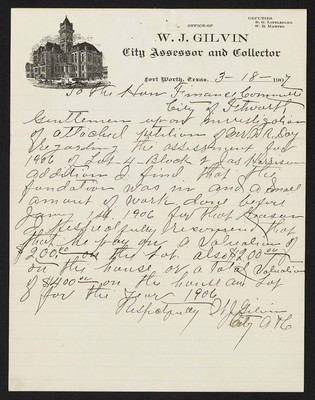 OFFICE OF
DEPUTIES
W. J. GILVIN
City Assessor and Collector
Fort Worth, Texas, 3-18-1907
To the Hon Finance Committee
City of Ft Worth
Gentlemen upon investigation
of attached petition of Day
regarding the assessment for
1906 of Lot-4-Block 2 Jas Harrison
addition I find that the
fondation was in and a small
amount of work done before
Jany 1st 1906 for that reason
I respectfully recomend that
that he pay on a valuation of
$200.00 on the lot. also $200.00
on the house or a total valuation
of $400.00 on the house and Lot
for the year 1906
Respectfully W J Gilvin
City A & C